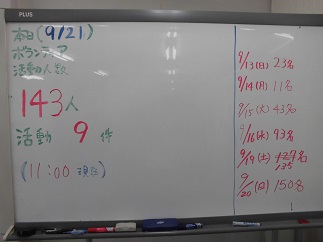 PLUS
本日(9/21)
ボランティア
活動人数
143人
活動 9 件
(11:00 現在)
9/13(日) 23名
9/14(月) 11名
9/15(火) 43名
9/16(水) 93名
9/19(土) 127名
135
9/20(日) 150名